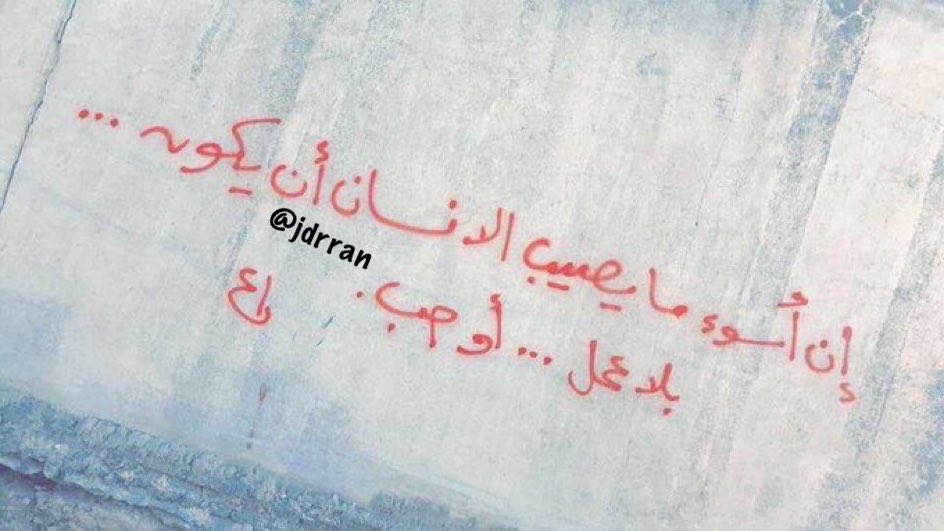 إن أسوء ما يصيب الانسان أن يكون ...
بلا عمل ... أو حب .
@jdrran